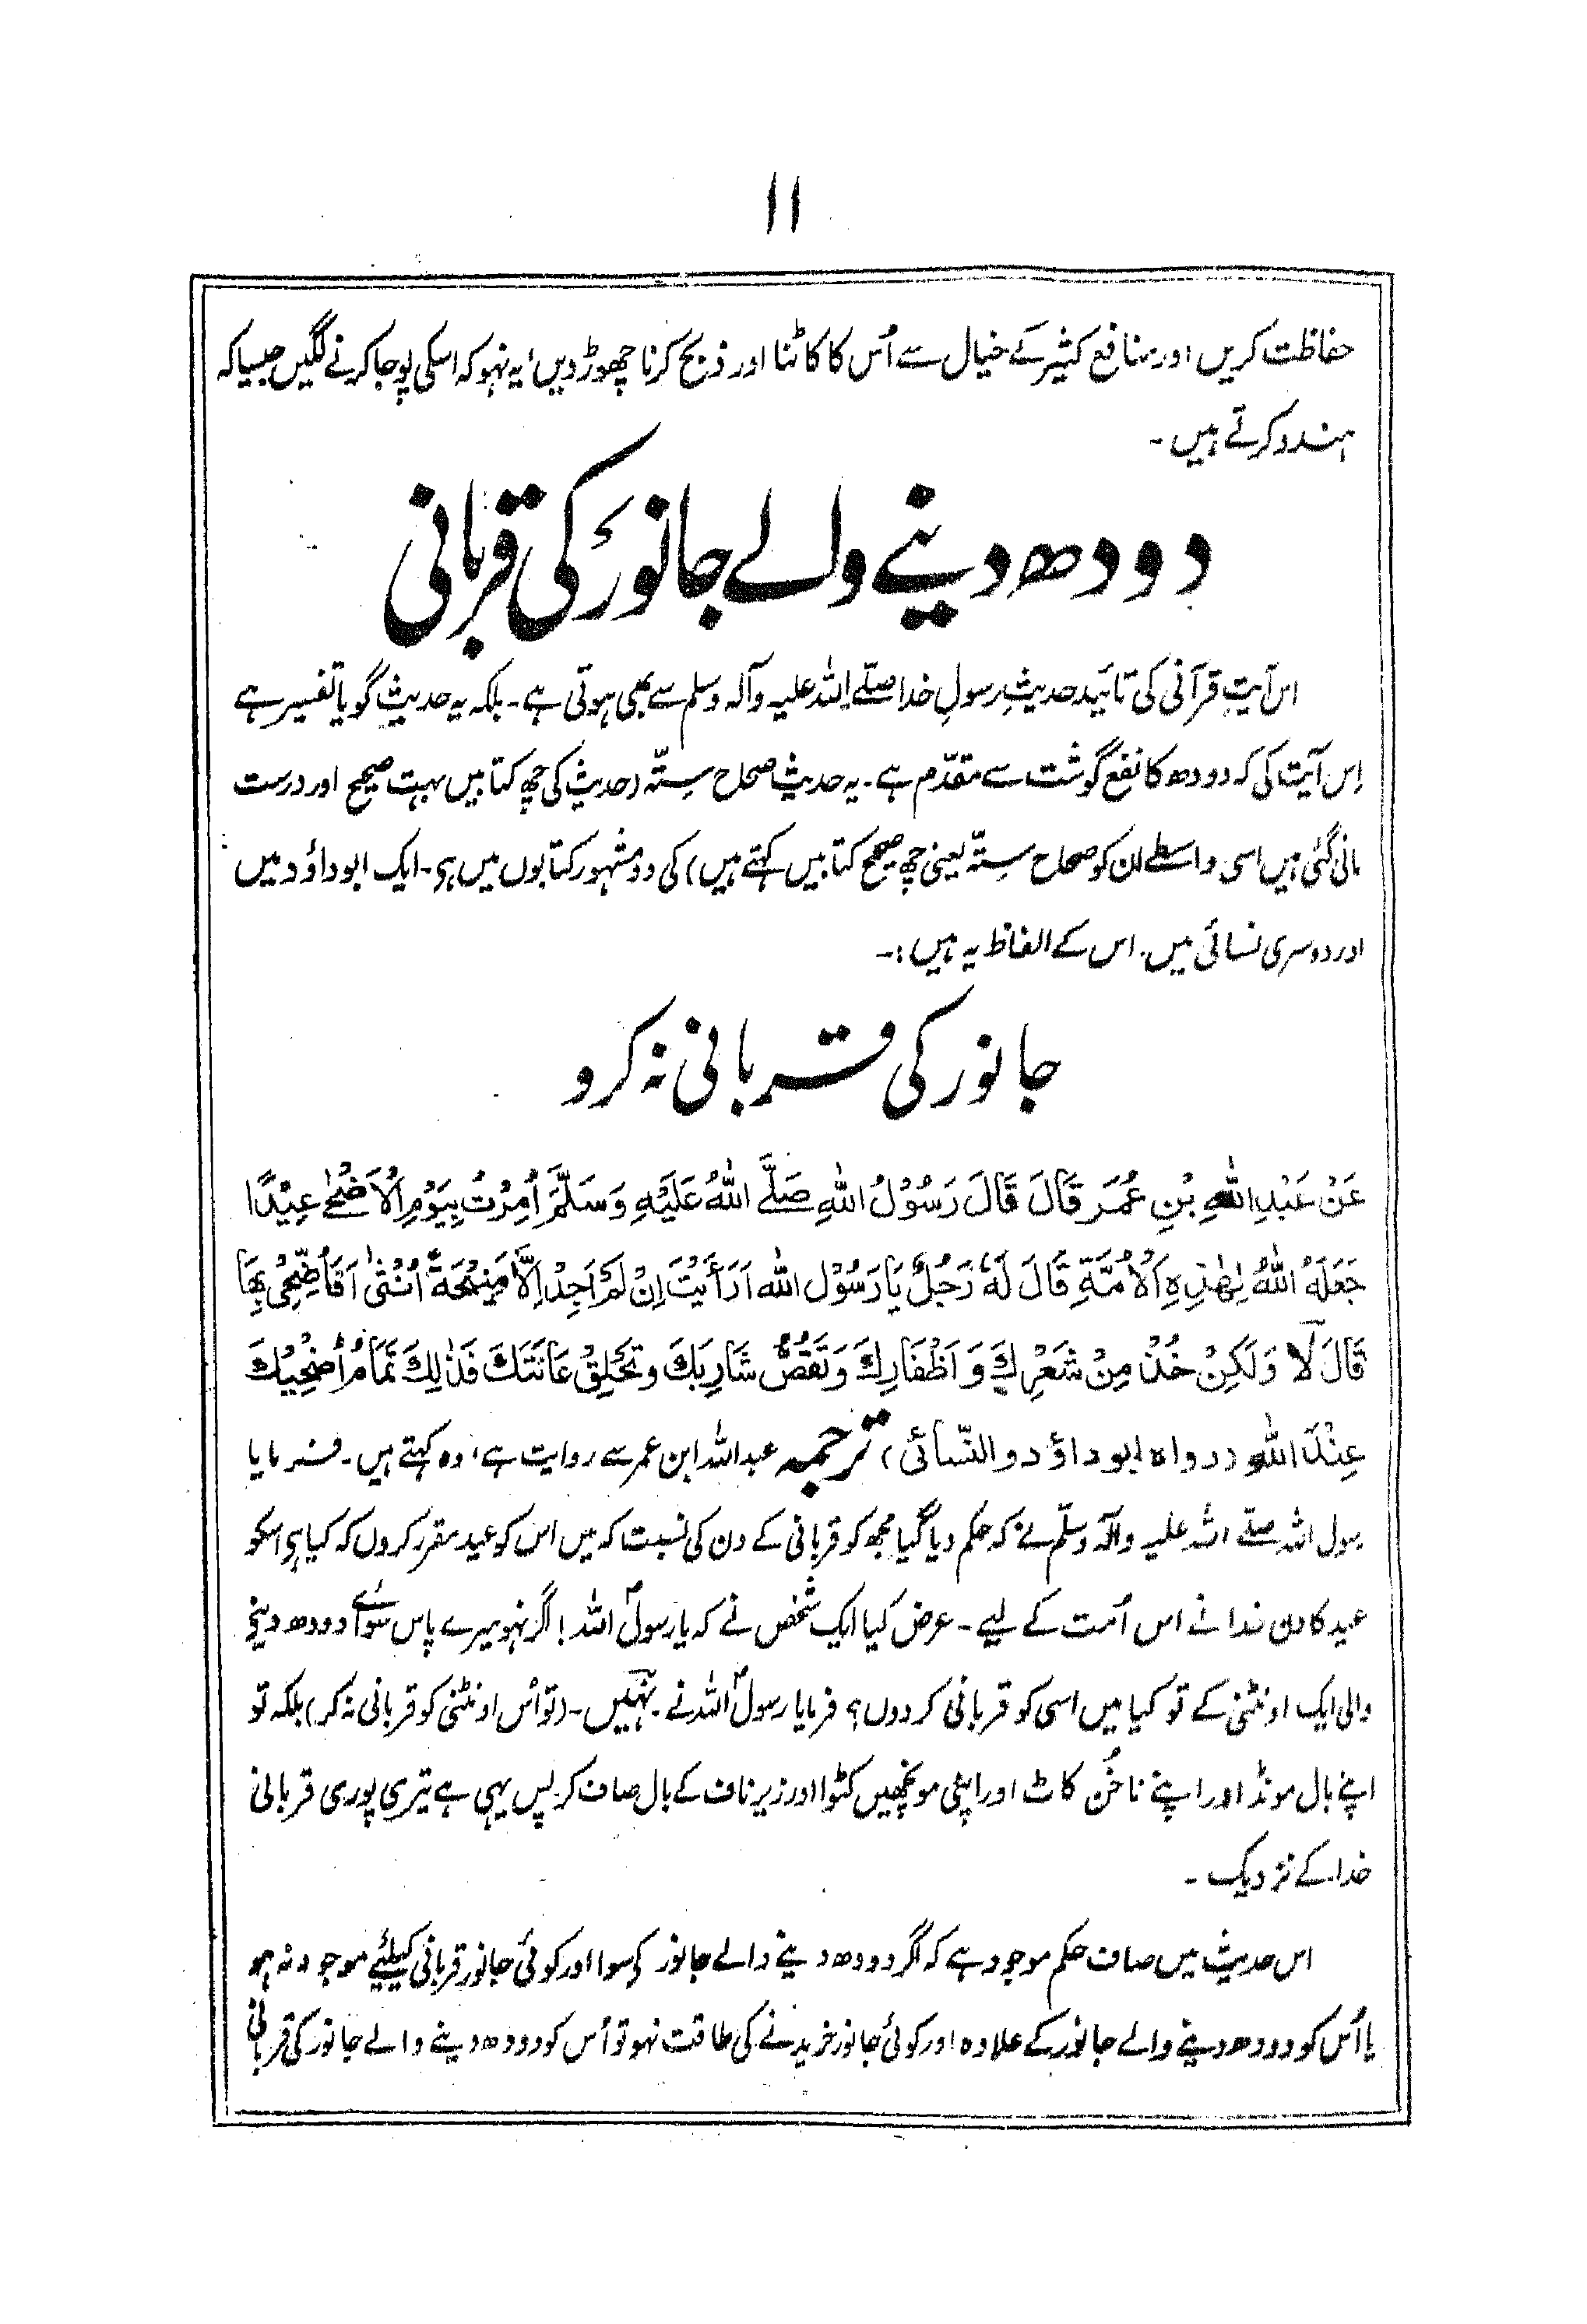 ۱۱
حفاظت کریں اور منافع کثیر کے خیال سے اُس کا کاٹنا اور ذبح کرنا چھوڑ دیں، یہ نہو کہ اسکی پوجا کرنے لگیں جیسا کہ
ہندو کرتے ہیں۔
دودھ دینے والے جانور کی قربانی
اس آیتِ قرآنی کی تائید حدیثِ رسولِ خدا صلّے اللہ علیہ وآلہ وسلم سے بھی ہوتی ہے۔ بلکہ یہ حدیث گویا تفسیر ہے
اِس آیت کی کہ دودھ کا نفع گوشت سے مقدّم ہے۔ یہ حدیث صحاح سِتّہ (حدیث کی چھ کتابیں بہت صحیح اور درست
مانی گئی ہیں اسی واسطے ان کو صحاح ستّہ یعنی چھ صحیح کتابیں کہتے ہیں) کی دو مشہور کتابوں میں ہی۔ ایک ابوداؤد میں
اور دوسری نسائی میں۔ اس کے الفاظ یہ ہیں:۔
جانور کی قربانی نہ کرو
عَنْ عَبْدِ اللّٰهِ بْنِ عُمَرَ قَالَ قَالَ رَسُوْلُ اللّٰهِ صَلَّے اللّٰهُ عَلَيْهِ وَسَلَّمَ اُمِرْتُ بِيَوْمِ الْاَضْحٰے عِيْدًا
جَعَلَهُ اللّٰهُ لِهٰذِهِ الْاُمَّةِ قَالَ لَهٗ رَجُلٌ يَا رَسُوْل اللّٰه اَرَأَيْتَ اِنْ لَمْ اَجِدْ اِلَّا مَنِيْحَةً اُنْثٰى اَفَاُضَحِّىْ بِهَا
قَالَ لَا وَلٰكِنْ خُذْ مِنْ شَعْرِكَ وَ اَظْفَارِكَ وَتَقُصُّ شَارِبَكَ وتَحْلِقُ عَانَتَكَ فَذٰلِكَ تَمَامُ اُضْحِيَّتِكَ
عِنْدَ اللّٰهِ (رواہ ابوداؤد والنّسائی) ترجمہ عبداللہ ابن عمر سے روایت ہے، وہ کہتے ہیں۔ فرمایا
رسول اللہ صلّے اللہ علیہ وآلہ وسلّم نے کہ حکم دیا گیا مجھ کو قربانی کے دن کی نسبت کہ میں اس کو عید مقرر کروں کہ کیا ہی اسکو
عید کا دن خدا نے اس اُمت کے لیے۔ عرض کیا ایک شخص نے کہ یا رسولؐ اللہ! اگر نہو میرے پاس سوائے دودھ دینے
والی ایک اونٹنی کے تو کیا میں اسی کو قربانی کر دوں؟ فرمایا رسولؐ اللہ نے۔ نہیں۔ (تو اُس اونٹنی کو قربانی نہ کر) بلکہ تو
اپنے بال مونڈ اور اپنے ناخُن کاٹ اور اپنی مونچھیں کٹوا اور زیر ناف کے بال صاف کر پس یہی ہے تیری پوری قربانی
خدا کے نزدیک۔
اس حدیث میں صاف حکم موجود ہے کہ اگر دودھ دینے والے جانور کے سوا اور کوئی جانور قربانی کیلئے موجود نہ ہو
یا اُس کو دودھ دینے والے جانور کے علاوہ اور کوئی جانور خریدنے کی طاقت نہو تو اُس کو دودھ دینے والے جانور کی قربانی